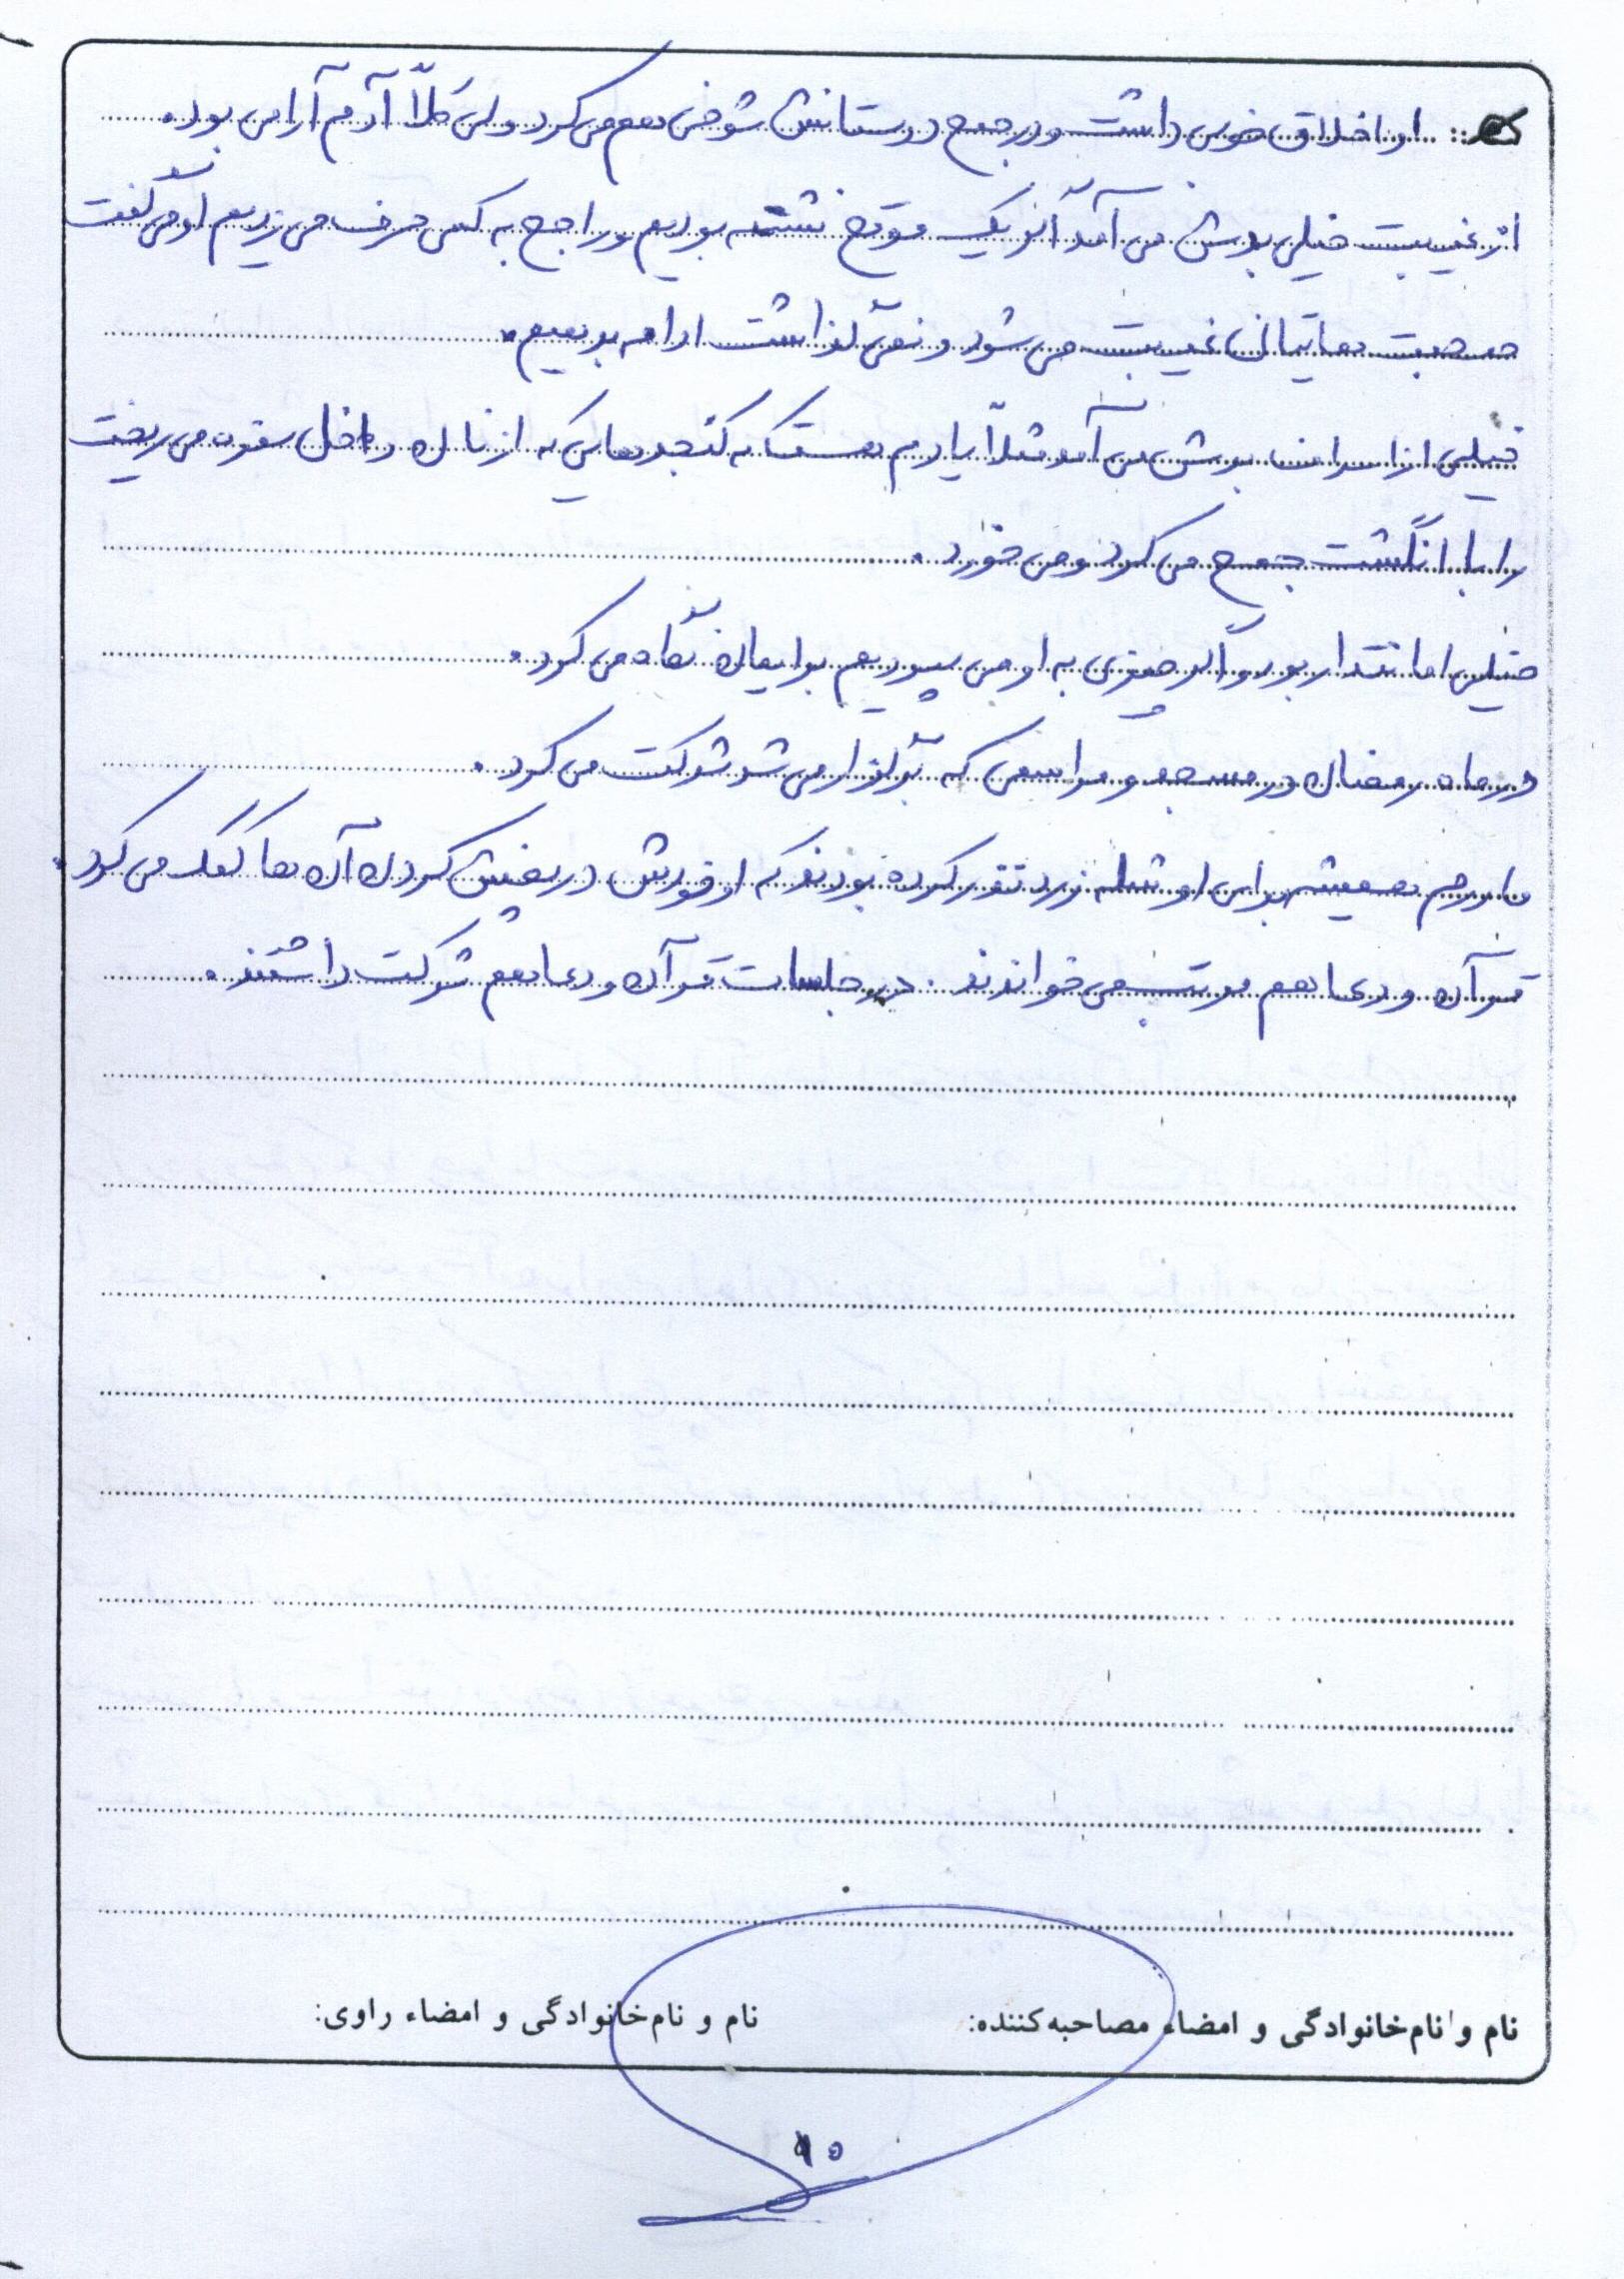 او اخلاق خوبی داشت و در جمع دوستانش شوخی هم می کرد ولی کلاً آدم آرامی بود.
از غیبت خیلی بدش می آمد اگر یک موقع نشسته بودیم و راجع به کسی حرف می زدیم او می گفت
صحبت هایتان غیبت می شود و نمی گذاشت ادامه بدهیم.
خیلی از اسراف بدش می آمد مثلاً یادم هست که کنجدهایی که از نان داخل سفره می ریخت
را با انگشت جمع می کرد و می خورد.
خیلی امانتدار بود و اگر چیزی به او می سپردیم برایمان نگاه می کرد.
در ماه رمضان در مسجد و مراسمی که برگزار می شد شرکت می کرد.
مادرم همیشه برای او شله زرد نذر کرده بودند که او خودش در پخش کردن آن ها کمک می کرد.
قرآن و دعا هم مرتب می خواندند. در جلسات قرآن و دعا هم شرکت داشتند.
نام و نام‌خانوادگی و امضاء مصاحبه‌کننده: نام و نام‌خانوادگی و امضاء راوی: